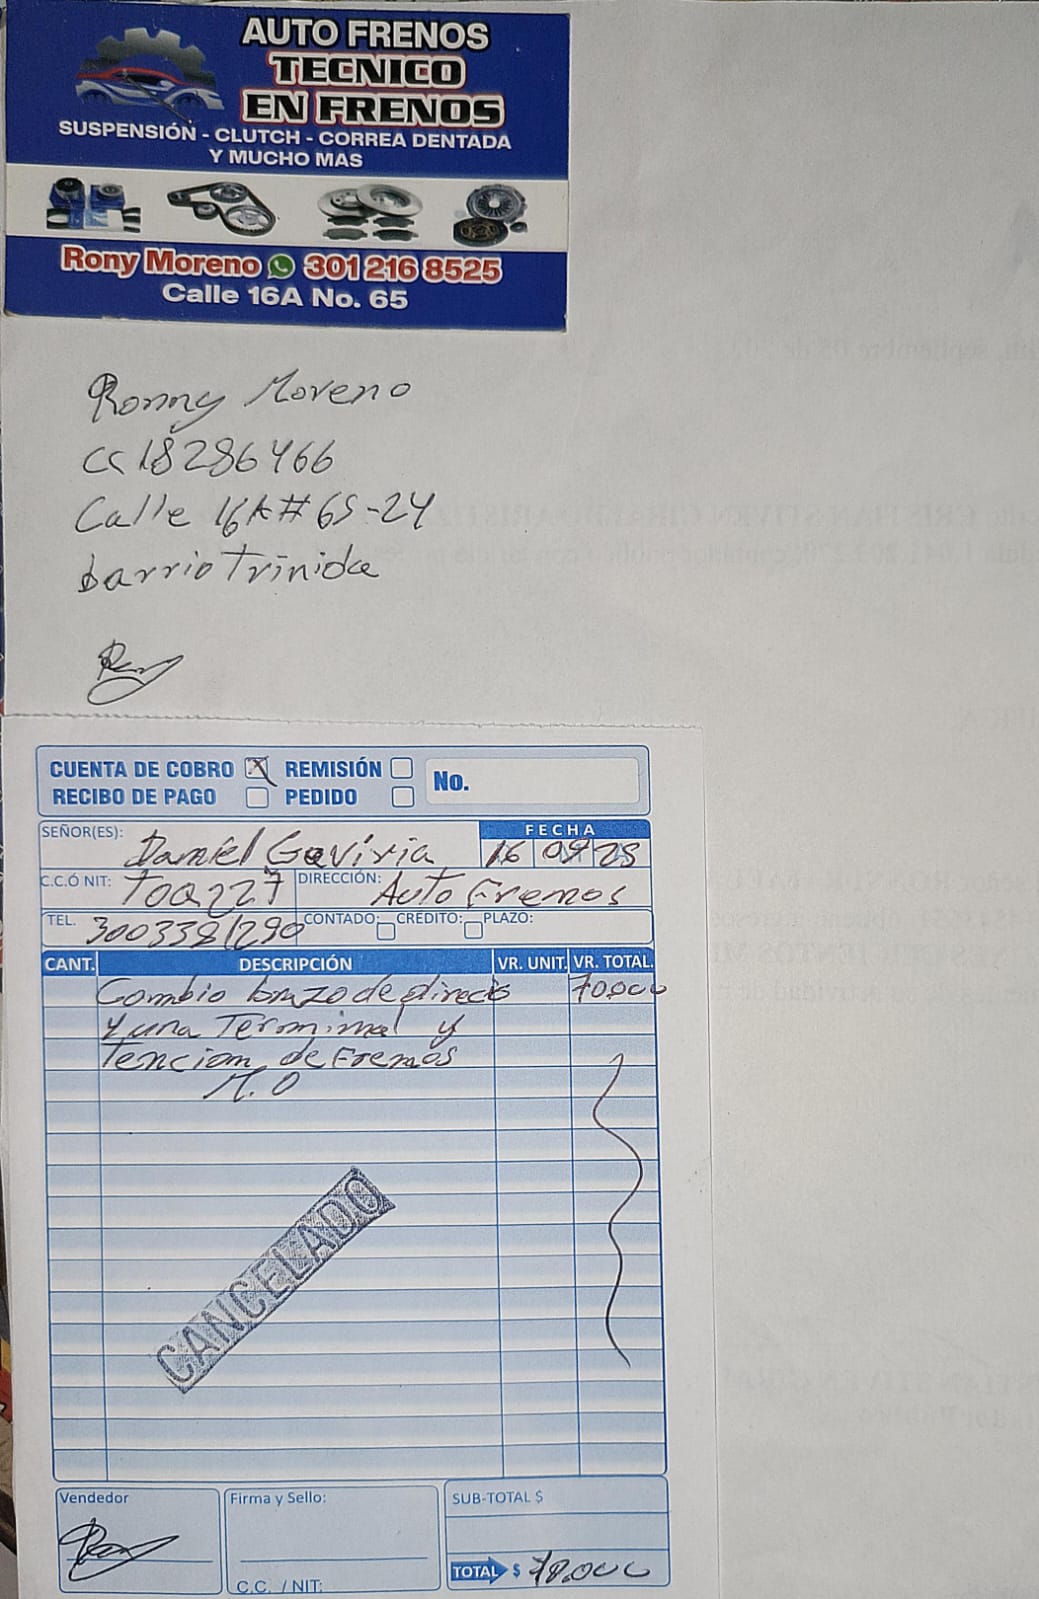 AUTO FRENOS
TECNICO
EN FRENOS
SUSPENSIÓN - CLUTCH - CORREA DENTADA
Y MUCHO MAS
Rony Moreno 301 216 8525
Calle 16A No. 65
Ronny Moreno
CC 18286466
Calle 16A # 65-24
barrio Trinida
CUENTA DE COBRO X REMISIÓN
RECIBO DE PAGO PEDIDO
No.
SEÑOR(ES): Daniel Gaviria
FECHA
16 09 25
C.C.Ó NIT: TOQ227 DIRECCIÓN: Auto Frenos
TEL. 3003381290 CONTADO: CRÉDITO: PLAZO:
CANT. DESCRIPCIÓN VR. UNIT. VR. TOTAL.
Cambio brazo de direcio 70.000
y una Terminal y
Tencion de Frenos
M.O
CANCELADO
Vendedor
Firma y Sello:
C.C. / NIT:
SUB-TOTAL $
TOTAL $ 70.000